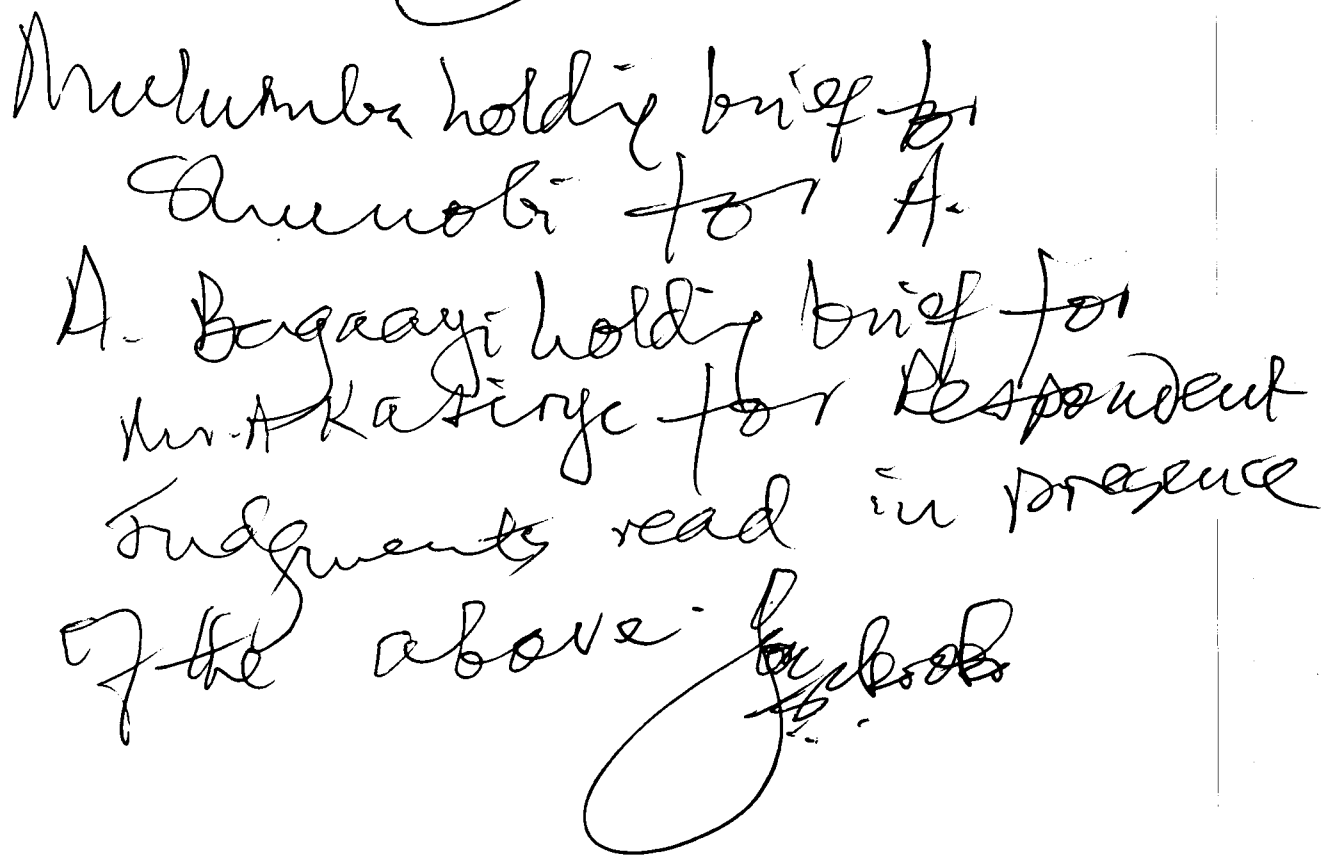 Mulumba holding brief for
Shunobi for A.
A. Bagaayi holding brief for
Mr. A Katirye for Respondent
Judgments read in presence
of the above.